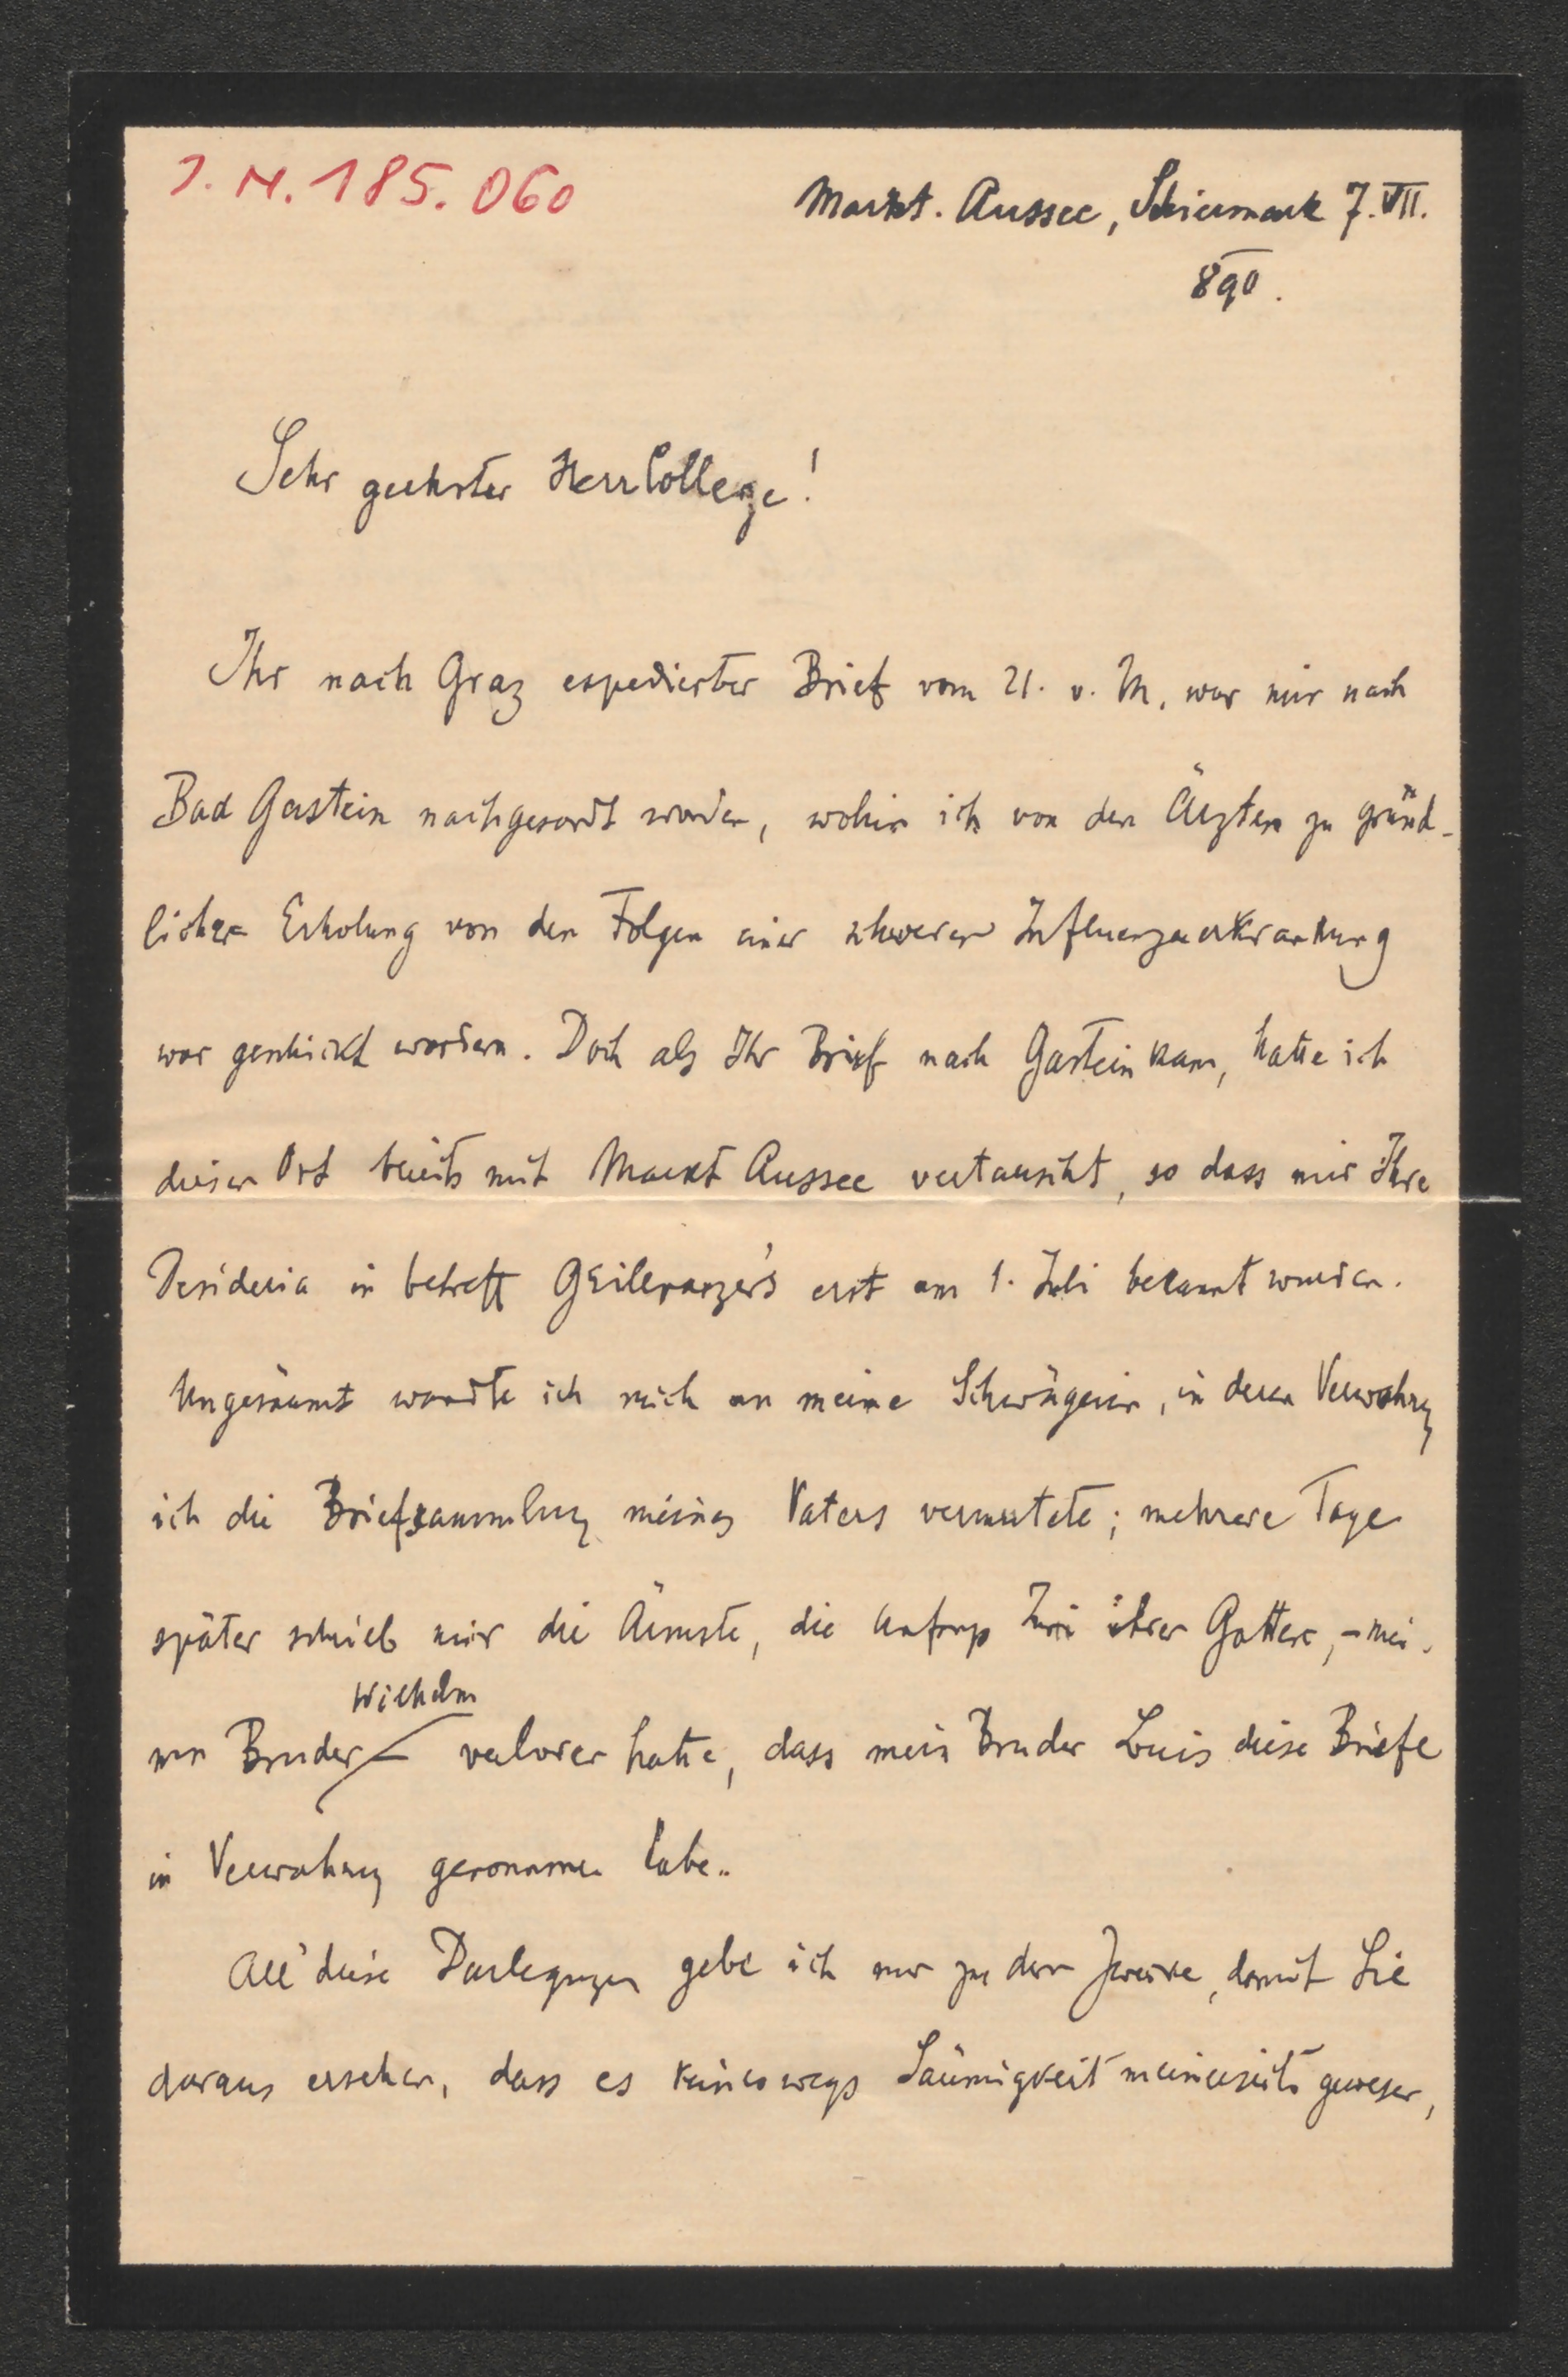 J. N. 185.060
Markt. Aussee, Steiermark 7. VII.
890.
Sehr geehrter Herr College!
Ihr nach Graz expedierter Brief vom 21. v. M. war mir nach
Bad Gastein nachgesandt worden, wohin ich von den Ärzten zu gründ-
licher Erholung von den Folgen einer schweren Influenzaerkrankung
war geschickt worden. Doch als Ihr Brief nach Gastein kam, hatte ich
diesen Ort bereits mit Markt Aussee vertauscht, so dass mir Ihre
Desideria in betreff Grillparzer's erst am 1. Juli bekannt wurden.
Ungesäumt wandte ich mich an meine Schwägerin, in deren Verwahrung
ich die Briefsammlung meines Vaters vermutete; mehrere Tage
später schrieb mir die Ärmste, die anfangs Juni ihren Gatten, – mei-
nen Bruder Wilhelm – verloren hatte, dass mein Bruder Louis diese Briefe
in Verwahrung genommen habe.
All' diese Darlegungen gebe ich nur zu dem Zwecke, damit Sie
daraus ersehen, dass es keineswegs Säumigkeit meinerseits gewesen,